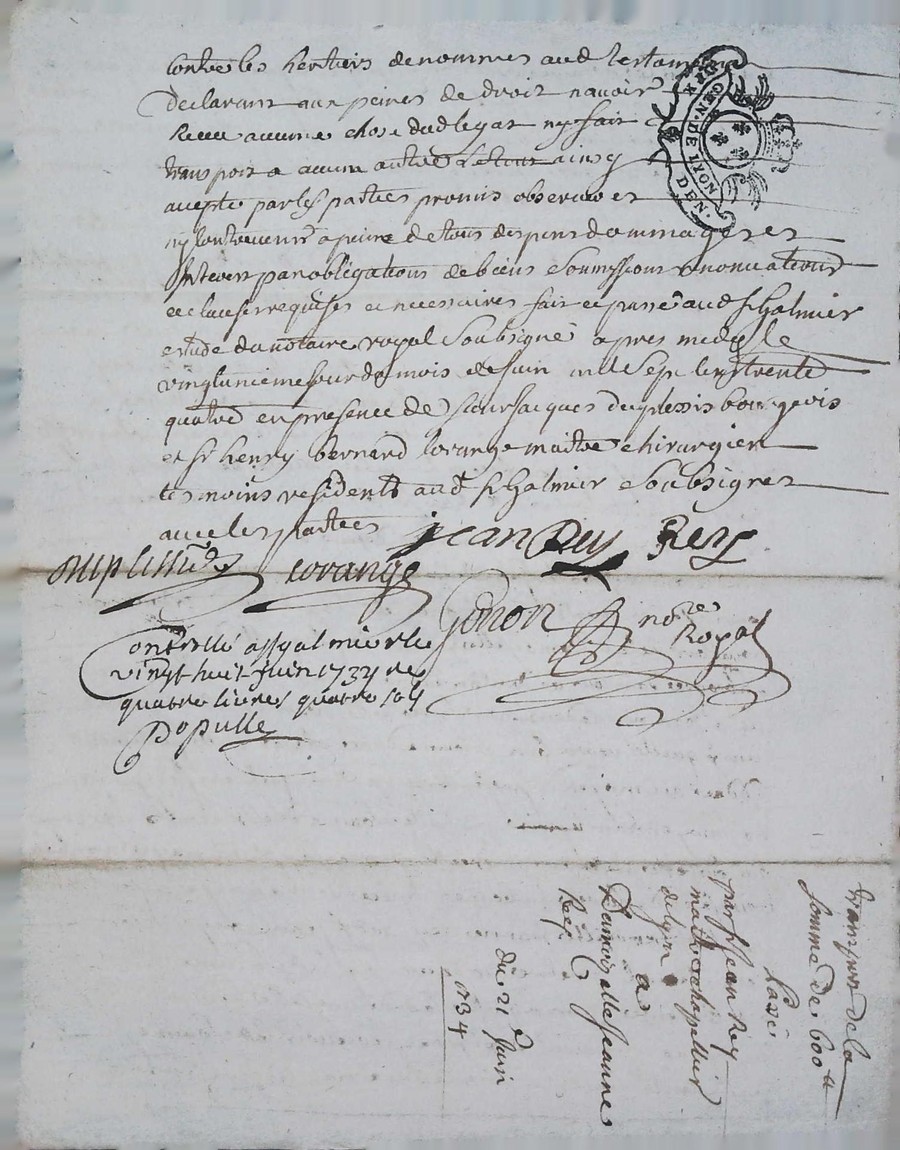 contre les heritiers denommes aud testament
declarant aux peines de droit navoir
Receu aucune chose dud legat ny fait
transport a aucun autre Le tout ainsy
acepté par les parties promis observer et
ny contrevenir a peine de tous despens dommages et
Interets par obligations de biens Soumissions renonciations
et clauses requises et necessaires fait et passé aud St Galmier
estude du notaire royal Soubsigné apres midy le
vingtunieme Jour du mois de Juin mil Sept cens trente
quatre en presence de Sieur Jacques duplessis bourgeois
et Sr henry bernard lorange maitre chirurgien
tesmoins residents aud St Galmier Soubsignes
avec les parties
jean Rey Rey
duplessis lorange
Gonon nore
Royal
Controllé a St galmier le
vingt huit juin 1734 re
quatre livres quatre sols
Populle
GEN. DE LYON
DEN.
transport de la
somme de 600tt
Passé
par Sr Jean Rey
maitre chapellier
de lyon
a
Damoizelle Jeanne
Rey
du 21 Juin
1734